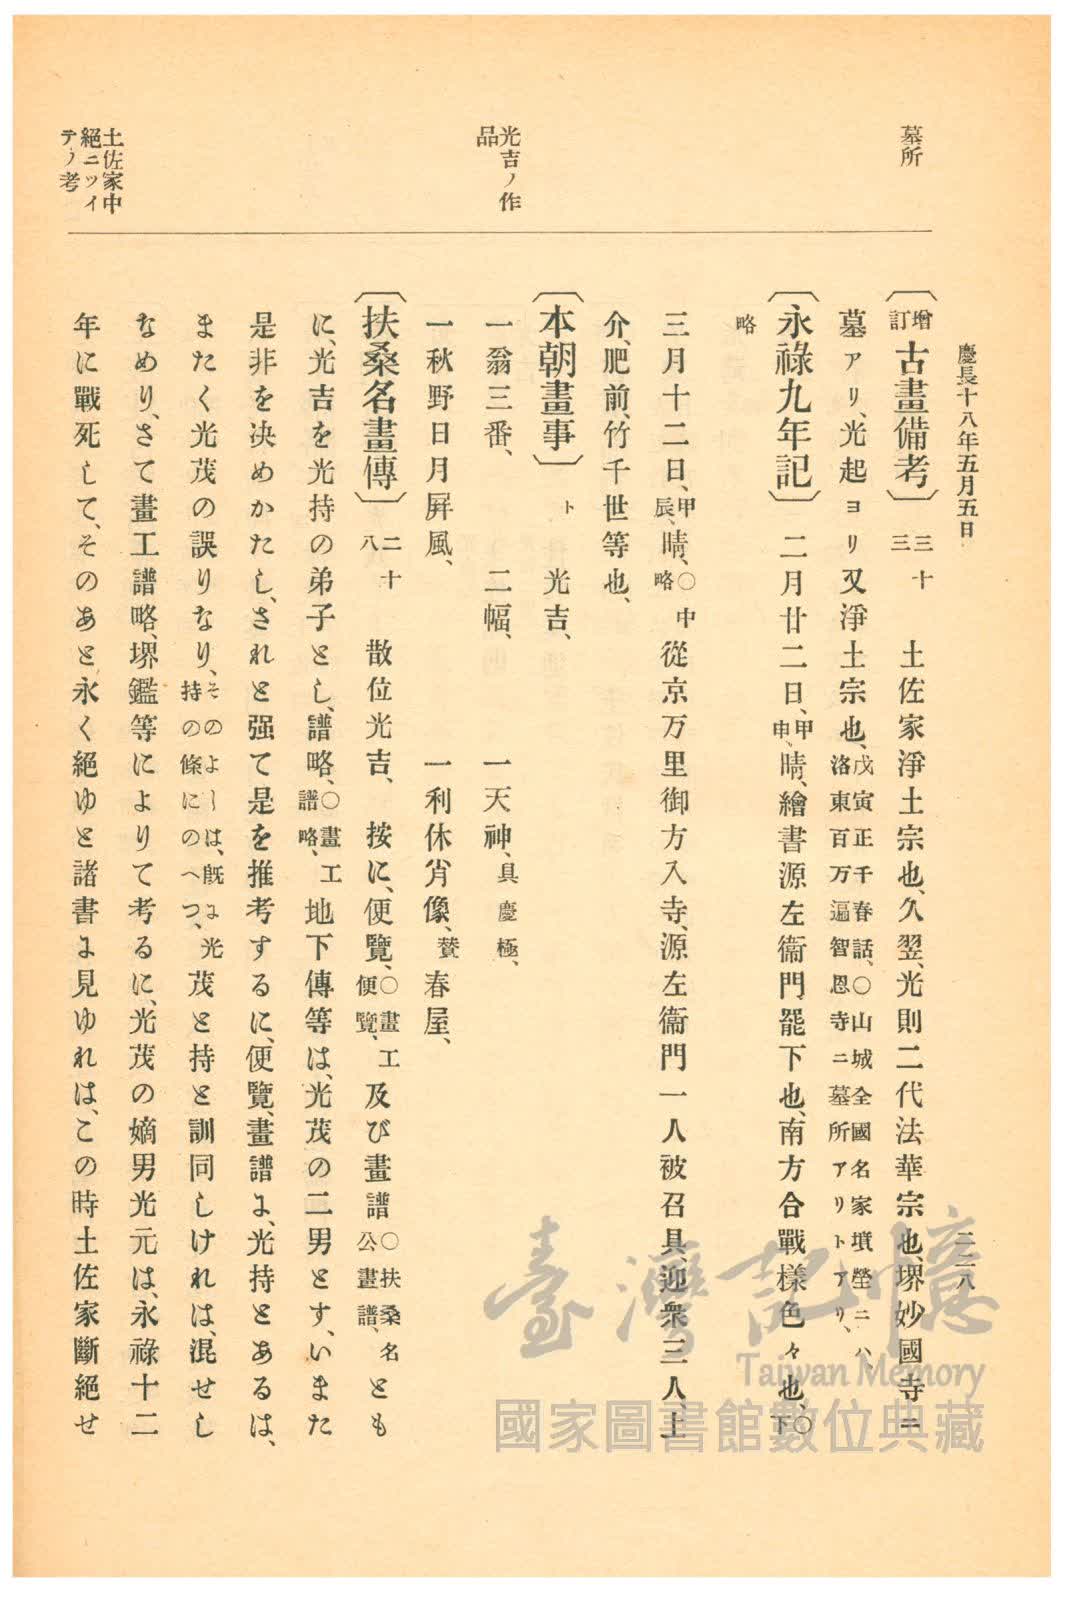 慶長十八年五月五日
二二八
墓所
光吉ノ作
品
土佐家中
絕ニツイ
テノ考
〔增訂古畫備考〕三十三　土佐家淨土宗也、久翌、光則二代法華宗也、堺妙國寺ニ
墓アリ、光起ヨリ又淨土宗也、戊寅正千春話、〇山城全國名家墳塋ニハ、洛東百万遍智恩寺ニ墓所アリトアリ、
〔永祿九年記〕二月廿二日、甲申、晴、繪書源左衞門、罷下也、南方合戰樣色々也、〇下
略
三月十二日、甲辰、晴、〇中略從京万里御方入寺、源左衞門一人被召具、迎衆三人、土
介、肥前、竹千世等也、
〔本朝畫事〕ト　光吉、
一翁三番、　二幅、　一天神、具慶極、
一秋野日月屛風、　一利休肖像、賛春屋、
〔扶桑名畫傳〕二十八　散位光吉、　按に、便覽、〇畫工便覽、及び畫譜〇扶桑名公畫譜、とも
に、光吉を光持の弟子とし、譜略、〇畫工譜略、地下傳等は、光茂の二男とす、いまた
是非を決めかたし、されと强て是を推考するに、便覽、畫譜に、光持とあるは、
またく光茂の誤りなり、そのよしは、既に光持の條にのへつ、茂と持と訓同しけれは、混せし
なめり、さて畫工譜略、堺鑑等によりて考るに、光茂の嫡男光元は、永祿十二
年に戰死して、そのあと永く絕ゆと諸書に見ゆれは、この時土佐家斷絕せ
臺灣記憶
Taiwan Memory
國家圖書館數位典藏